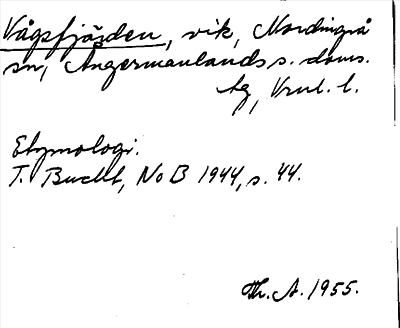 Vågsfjärden, vik, Nordingrå
sn, Ångermanlands s. doms.
tg, Vnul. l.
Etymologi.
T. Bucht, NoB 1944, s. 44.
Th. A. 1955.